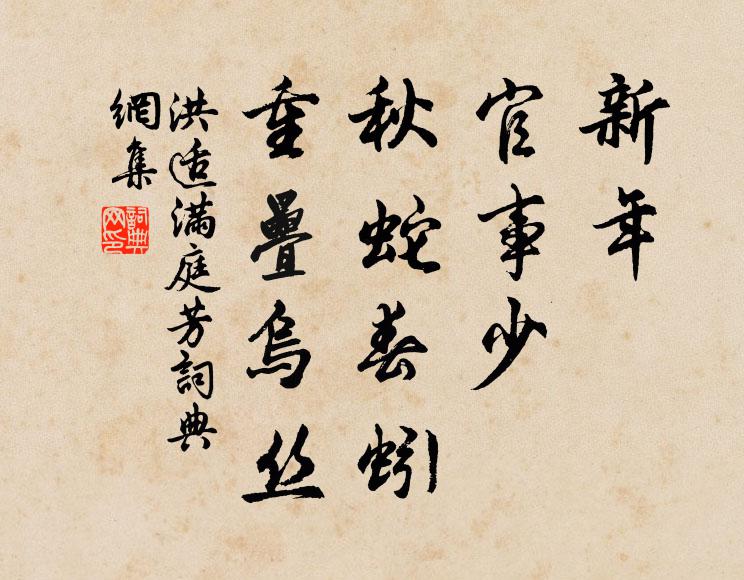 新年
官事少
秋蛇春蚓
重疊烏丝
洪适滿庭芳詞典
網集
詞典网印